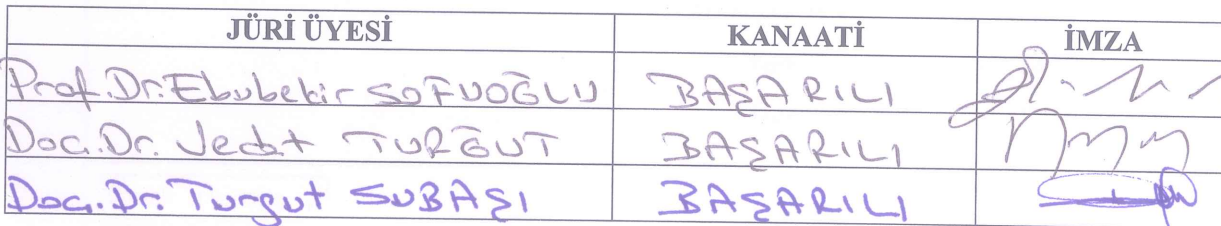 JÜRİ ÜYESİ KANAATİ İMZA
Prof.Dr.Ebubekir SOFUOĞLU BAŞARILI
Doç.Dr. Vedat TURĞUT BAŞARILI
Doç.Dr. Turgut SUBAŞI BAŞARILI